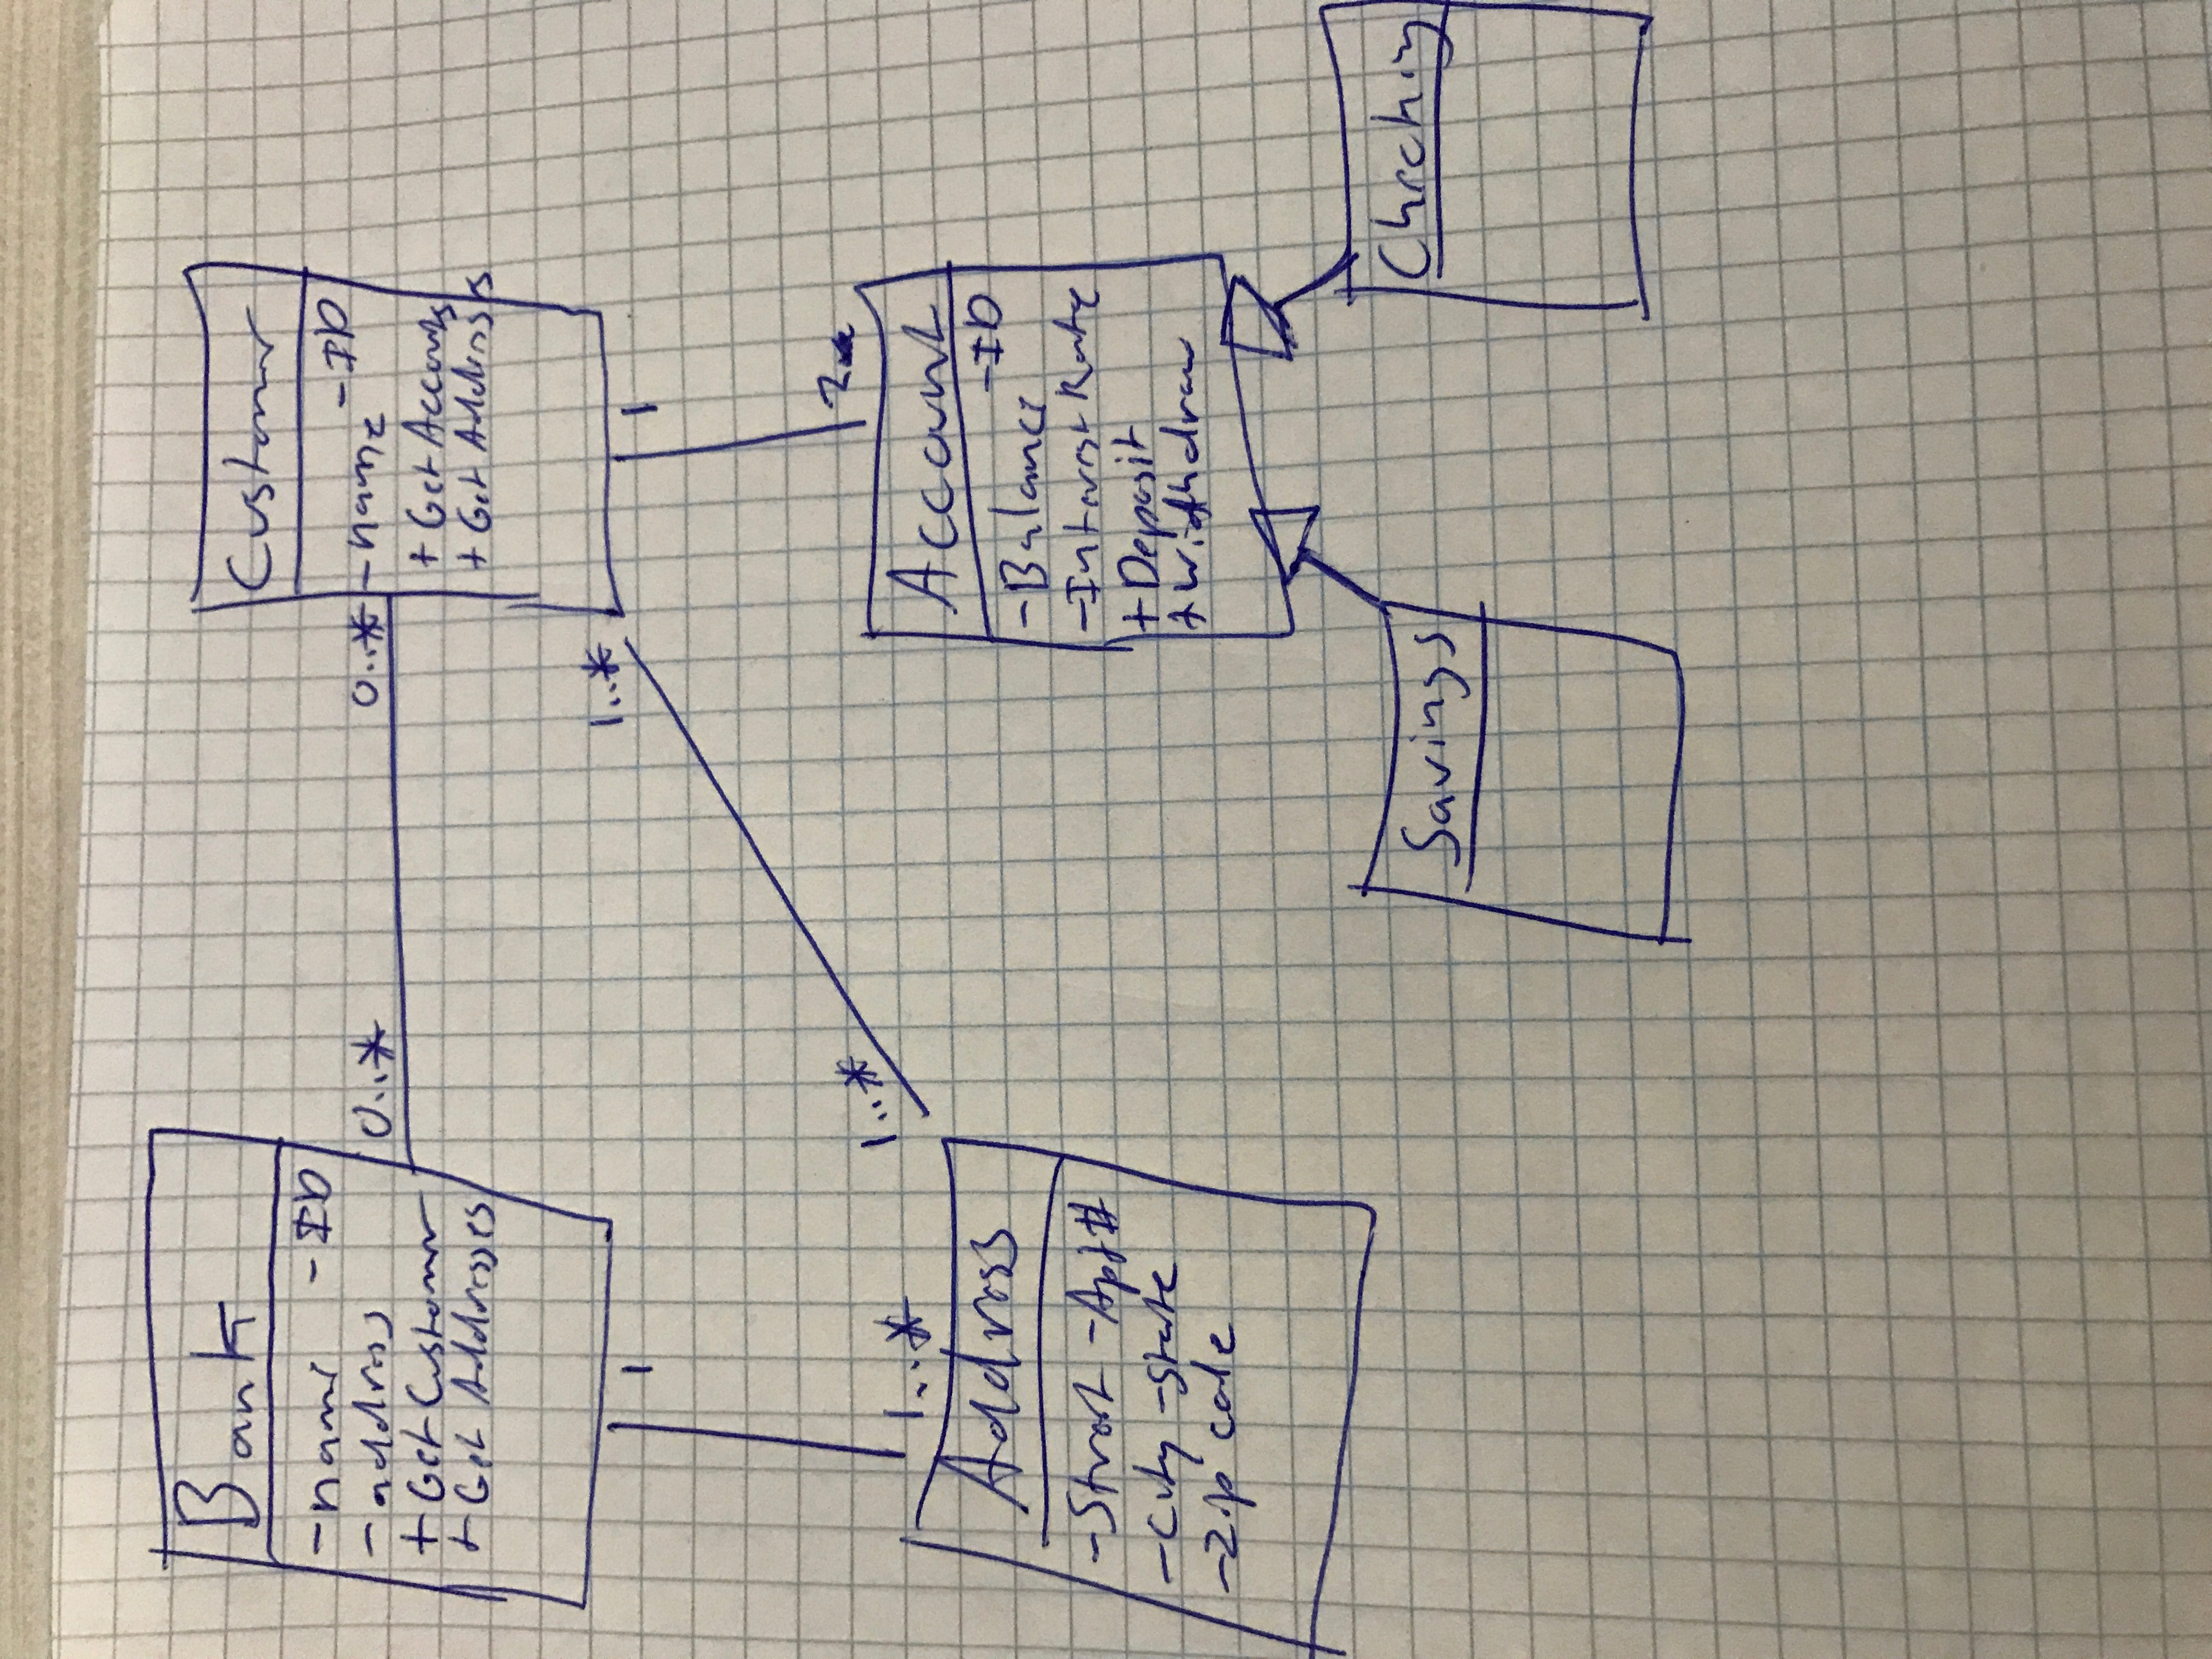 Bank
-name -ID
-address
+Get Customer
+Get Addresses
0..*
0..*
Customer
-ID
-name
+ Get Accounts
+ Get Addresses
1
1..*
1
1..*
1..*
2
Address
-Street -Apt#
-City -State
-Zip code
Account
-ID
-Balance
-Interest Rate
+Deposit
+Withdraw
Savings
Checking